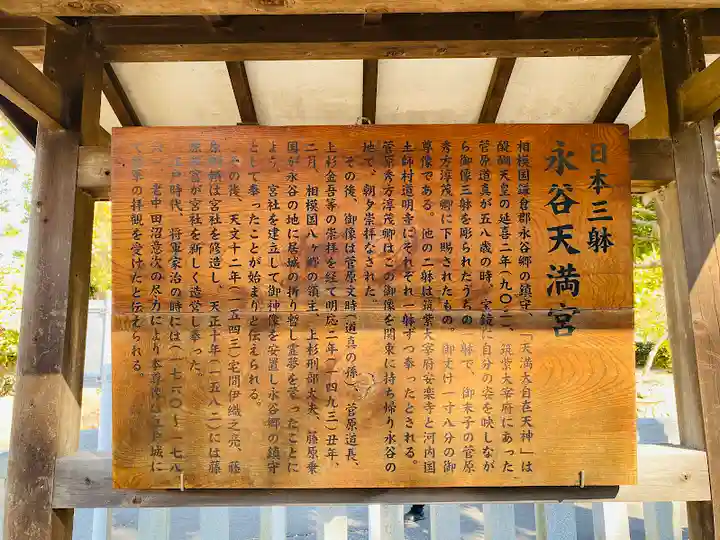 日本三躰
永谷天満宮
相模国鎌倉郡永谷郷の鎮守、「天満大自在天神」は
醍醐天皇の延喜二年(九〇二)、筑紫大宰府にあった
菅原道真が五八歳の時、宝鏡に自分の姿を映しなが
ら御像三躰を彫られたうちの一躰で、御末子の菅原
秀才淳茂卿に下賜されたもの。御丈け一寸八分の御
尊像である。他の二躰は筑紫大宰府安楽寺と河内国
土師村道明寺にそれぞれ一躰ずつ奉ったとされる。
菅原秀才淳茂卿はこの御像を関東に持ち帰り永谷の
地で、朝夕崇拝なされた。
その後、御像は菅原文時(道真の孫)、菅原道長、
上杉金吾等の崇拝を経て明応二年(一四九三)丑年、
二月、相模国八ヶ郷の領主、上杉刑部大夫、藤原乗
国が永谷の地に居城の折り暫し霊夢を蒙ったことに
より、宮社を建立して御神像を安置し永谷郷の鎮守
として奉ったことが始まりと伝えられる。
その後、天文十二年(一五四三)宅間伊織之亮、藤
原 は宮社を修造し、天正十年(一五八二)には藤
が宮社を新しく造営し奉った。
江戸時代、将軍家治の時には(一七六〇〜一七八
六)、老中田沼意次の尽力により本尊像は江戸城に
て将軍の拝観を受けたと伝えられる。